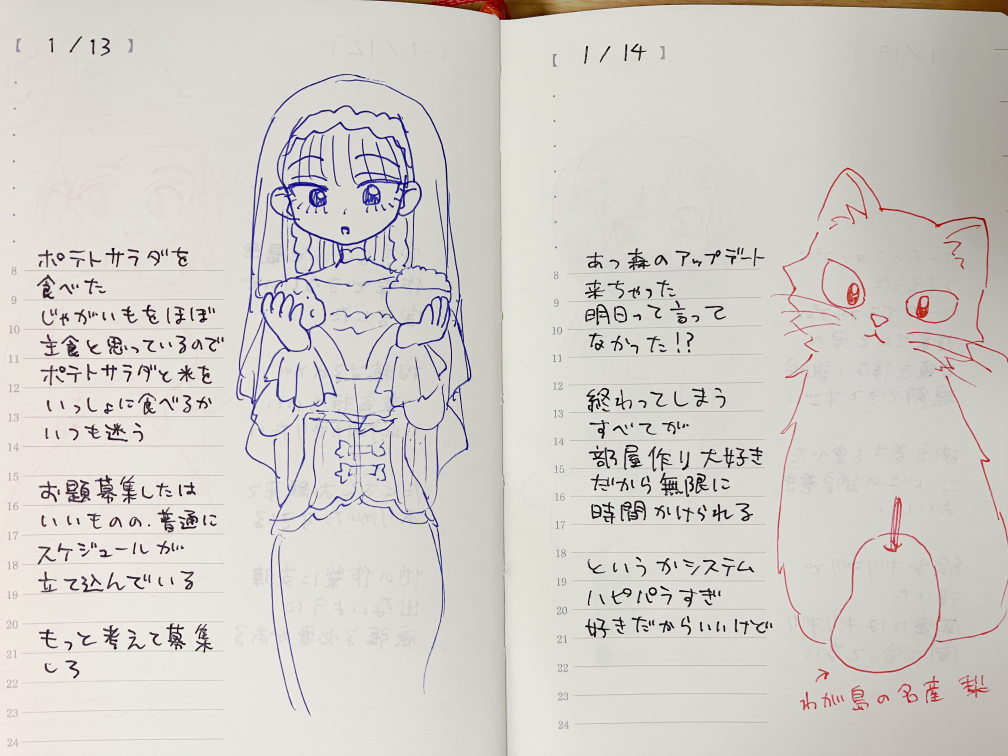 【 1/13 】
ポテトサラダを
食べた
じゃがいもをほぼ
主食と思っているので
ポテトサラダと米を
いっしょに食べるか
いつも迷う
お題募集したは
いいものの、普通に
スケジュールが
立て込んでいる
もっと考えて募集
しろ
8
9
10
11
12
13
14
15
16
17
18
19
20
21
22
23
24
【 1/14 】
あつ森のアップデート
来ちゃった
明日って言って
なかった!?
終わってしまう
すべてが
部屋作り大好き
だから無限に
時間かけられる
というかシステム
ハピパラすぎ
好きだからいいけど
8
9
10
11
12
13
14
15
16
17
18
19
20
21
22
23
24
わが島の名産 梨